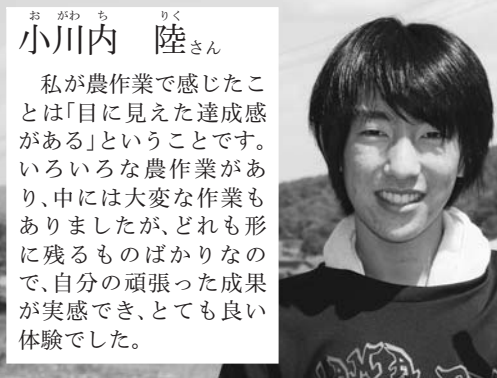 お がわ ち りく
小川内 陸さん
私が農作業で感じたこ
とは「目に見えた達成感
がある」ということです。
いろいろな農作業があ
り、中には大変な作業も
ありましたが、どれも形
に残るものばかりなの
で、自分の頑張った成果
が実感でき、とても良い
体験でした。